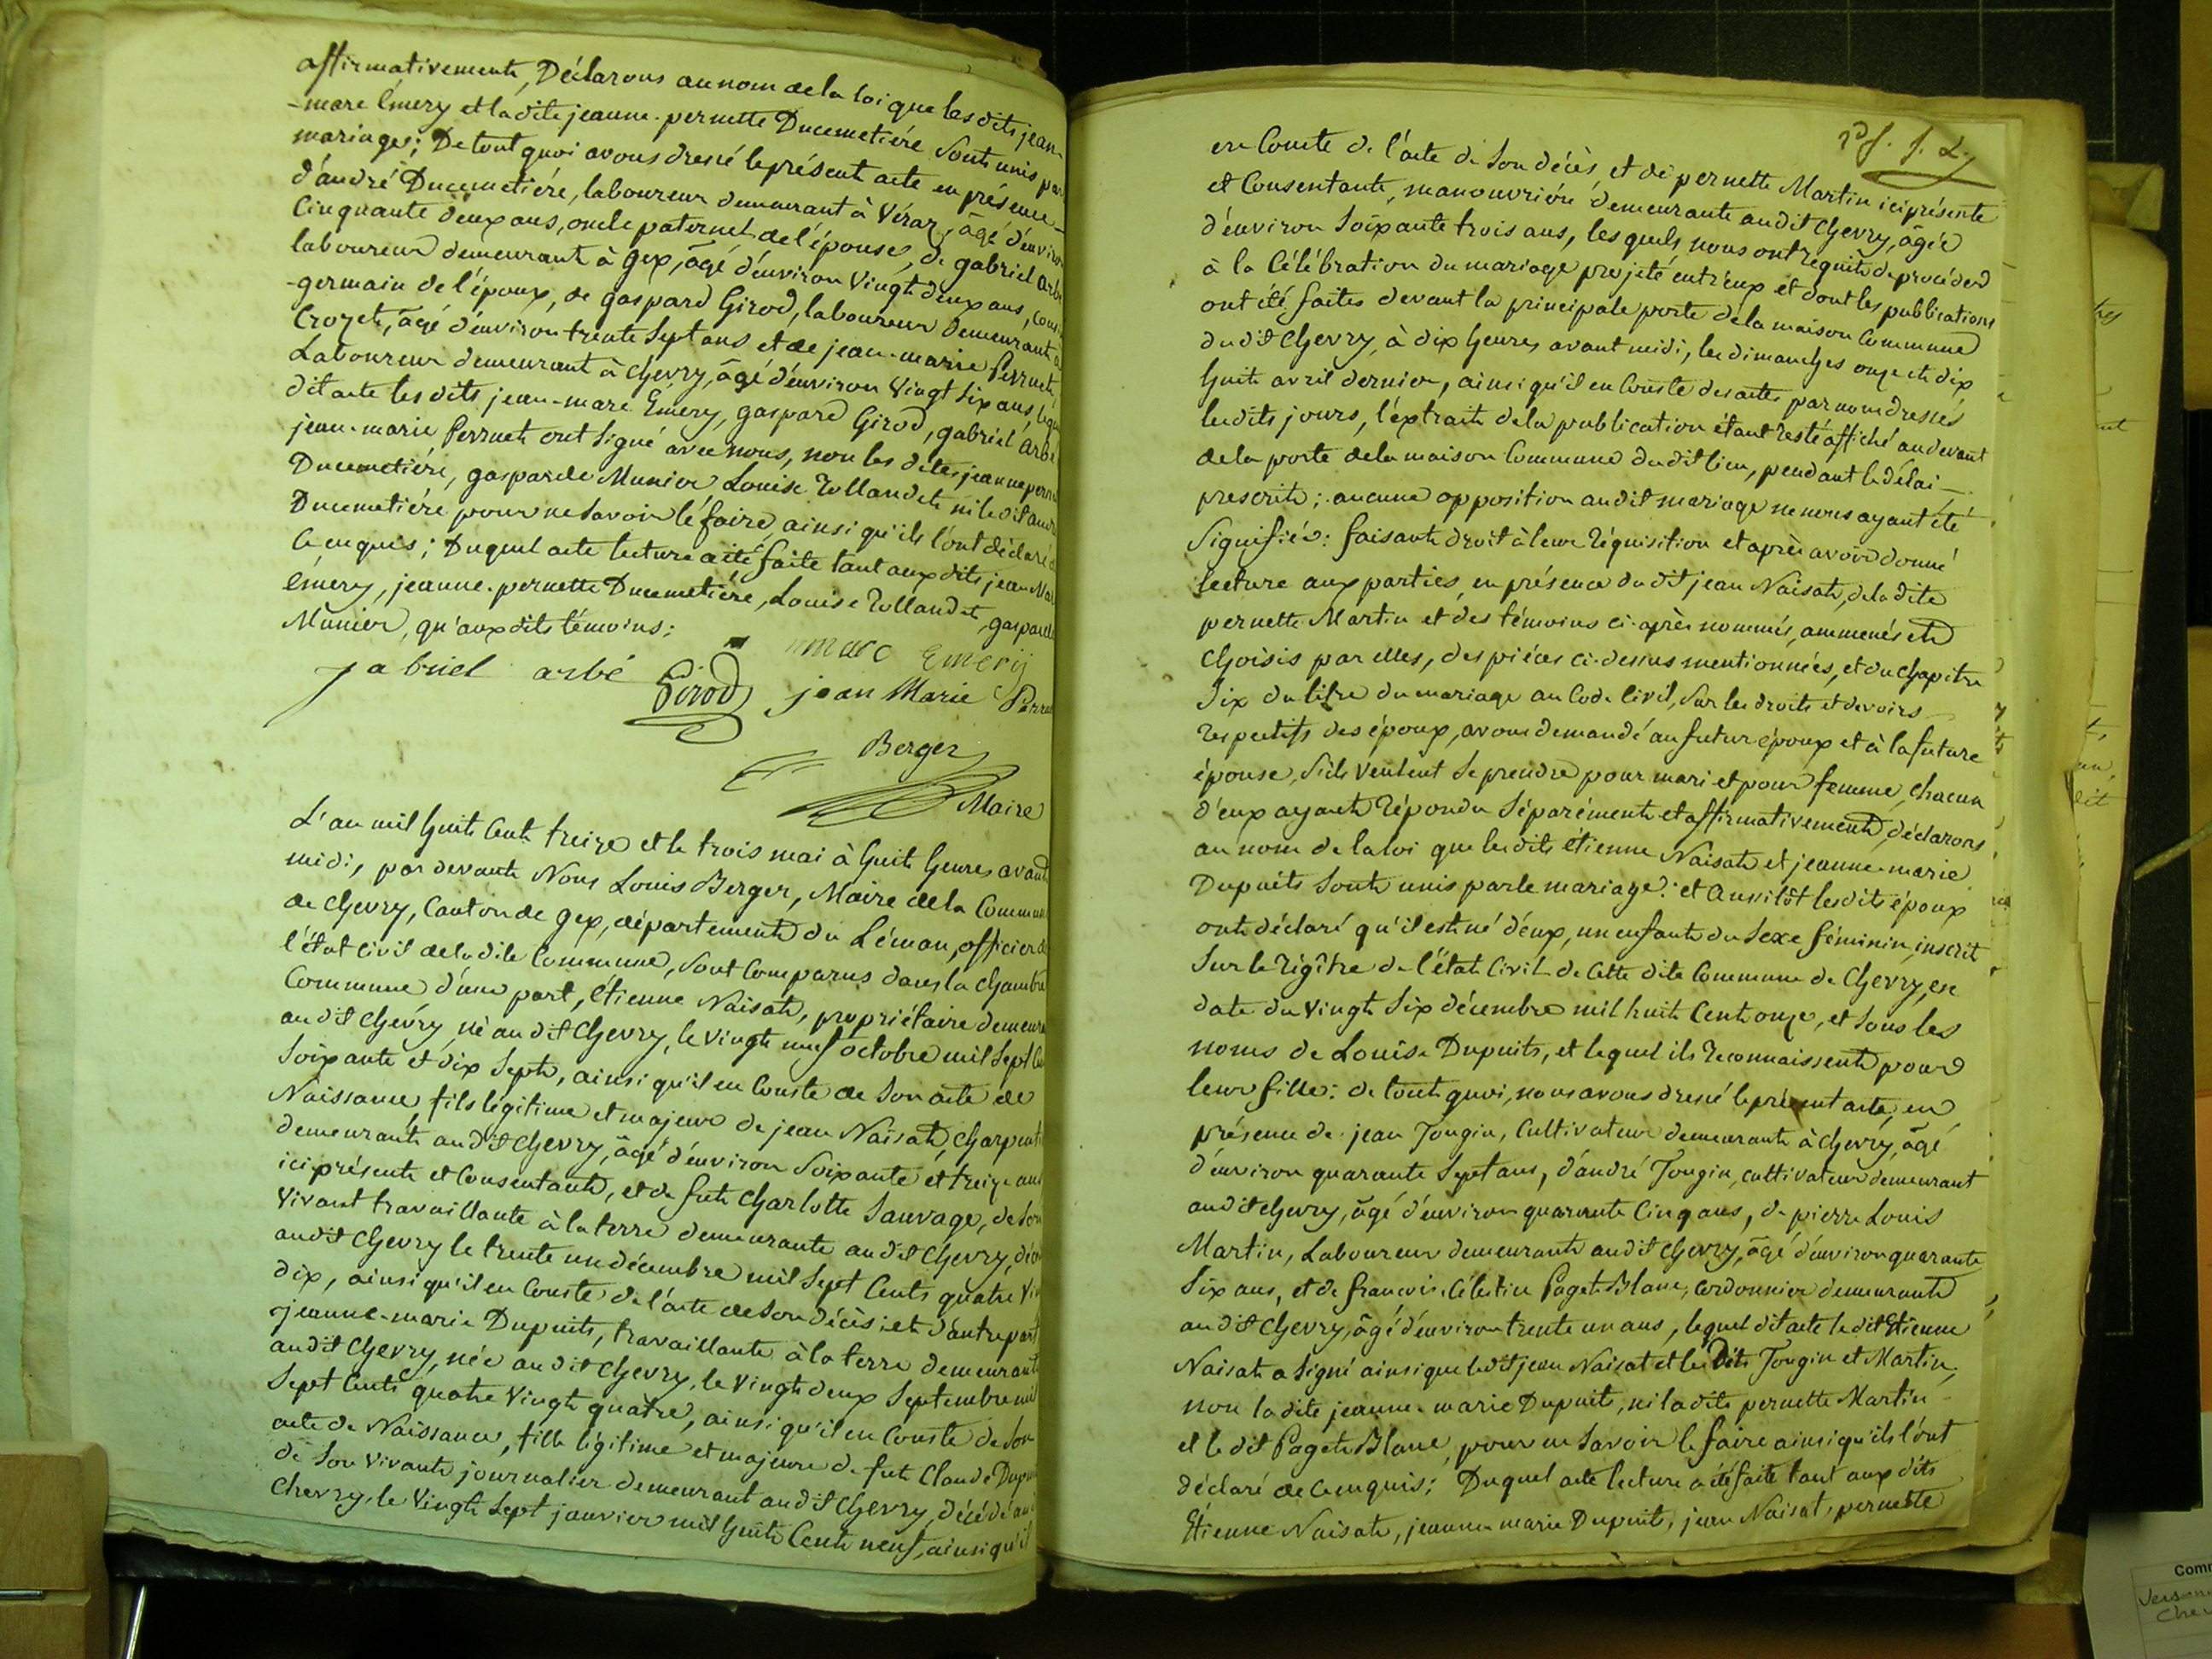 affirmativement, Déclarons au nom de la loi que les dits jean
-marc Emery et la dite jeanne-pernette Ducemetiére Sont unis par
mariage; De tout quoi avons dressé le présent acte en présence
d'andré Ducemetiére, laboureur demeurant à Véraz, âgé d'environ
Cinquante deux ans, oncle paternel de l'épouse, de gabriel arbé
laboureur demeurant à gex, âgé d'environ Vingt deux ans, cousin
-germain de l'époux, de gaspard Girod, laboureur demeurant à
Crozet, âgé d'environ trente Sept ans et de jean-marie Perruet
Laboureur demeurant à chevry, âgé d'environ Vingt Six ans, lequel
dit acte les dits jean-marc Emery, gaspard Girod, gabriel arbé
jean-marie Perruet ont Signé avec nous, non les dites jeanne pern
Ducemetiére, gasparde Munier Louise Rollandet ni le dit andré
Ducemetiére pour ne Savoir le faire, ainsi qu'ils l'ont déclaré
ce enquis; Duquel acte lecture a été faite tant aux dits jean Marc
Emery, jeanne-pernette Ducemetiére, Louise Rollandet, gasparde
Munier, qu'aux dits témoins;
gabriel arbé Girod marc Emerij
jean Marie Perruet
Berger
Maire
L'an mil huit Cent treize et le trois mai à huit heures avant
midi, par devant Nous Louis Berger, Maire de la Commune
de chevry, Canton de gex, département du Léman, officier de
l'état civil de la dite Commune, Sont Comparus dans la chambre
Commune d'une part, Etienne Naisat, propriétaire demeurant
au dit chevry, né au dit chevry, le vingt neuf octobre mil Sept Cent
Soixante et dix Sept, ainsi qu'il en Conste de Son acte de
Naissance, fils légitime et majeur de jean Naisat, charpentier
demeurant au dit chevry, âgé d'environ Soixante et treize ans
ici présent et Consentant, et de fut charlotte Sauvage, de Son
Vivant travaillante à la terre demeurante au dit chevry, décédée
au dit chevry le trente un décembre mil Sept Cents quatre Vingt
dix, ainsi qu'il en Conste de l'acte de Son décès; et d'autre part
jeanne-marie Dupuits, travaillante à la terre demeurante
au dit chevry, née au dit chevry, le Vingt deux Septembre mil
Sept Cents quatre Vingt quatre, ainsi qu'il en Conste de Son
acte de Naissance, fille légitime et majeure de fut Claude Dupuits
de Son Vivant journalier demeurant au dit chevry, décédé au dit
chevry, le Vingt Sept janvier mil huit Cent neuf, ainsi qu'il
en Conste de l'acte de Son décès, et de pernette Martin ici présente
et Consentante, manouvriére demeurante au dit chevry, âgée
d'environ Soixante trois ans, les quels nous ont requis de procéder
à la Célébration du mariage projeté entr'eux et dont les publications
ont été faites devant la principale porte de la maison Commune
du dit chevry, à dix heures avant midi, les dimanches onze et dix
huit avril dernier, ainsi qu'il en Conste des actes par nous dressés
les dits jours, l'extrait de la publication étant resté affiché au devant
de la porte de la maison Commune du dit lieu, pendant le délai
prescrit; aucune opposition au dit mariage ne nous ayant été
Signifiée: faisant droit à leur réquisition et après avoir donné
lecture aux parties, en présence du dit jean Naisat, de la dite
pernette Martin et des témoins ci-après nommés, ammenés et
choisis par elles, des piéces ci-dessus mentionnées, et du chapitre
Six du titre du mariage au Code Civil, Sur les droits et devoirs
respectifs des époux, avons demandé au futur époux et à la future
épouse, S'ils veulent Se prendre pour mari et pour femme, chacun
d'eux ayant répondu Séparément et affirmativement, déclarons
au nom de la loi que les dits étienne Naisat et jeanne-marie
Dupuits Sont unis par le mariage: et aussitôt les dits époux
ont déclaré qu'il est né d'eux, un enfant du Sexe féminin, inscrit
Sur le régître de l'état Civil de Cette dite Commune de chevry, en
date du Vingt Six décembre mil huit Cent onze, et Sous les
noms de Louise Dupuits, et lequel ils reconnaissent pour
leur fille: de tout quoi, nous avons dressé le présent acte, en
présence de jean Jongin, Cultivateur demeurant à chevry, âgé
d'environ quarante Sept ans, d'andré Jongin, cultivateur demeurant
au dit chevry, âgé d'environ quarante Cinq ans, de pierre Louis
Martin, Laboureur demeurant au dit chevry, âgé d'environ quarante
Six ans, et de françois-Célestin Paget Blanc, Cordonnier demeurant
au dit chevry, âgé d'environ trente un ans, lequel dit acte le dit Etienne
Naisat a Signé ainsi que le dit jean Naisat et les Dits Jongin et Martin,
non la dite jeanne-marie Dupuits, ni la dite pernette Martin
et le dit Paget Blanc, pour ne Savoir le faire ainsi qu'ils l'ont
déclaré de ce enquis; Duquel acte lecture a été faite tant aux dits
Etienne Naisat, jeanne-marie Dupuits, jean Naisat, pernette